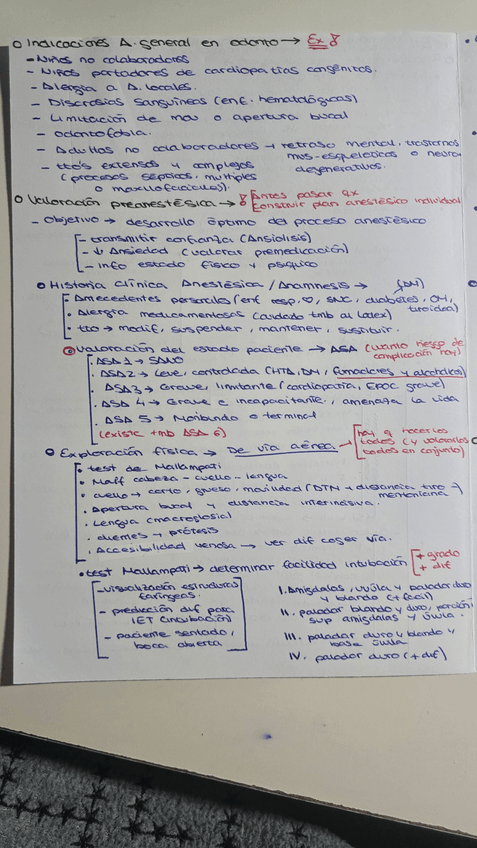 o Indicaciones A. general en odonto → Ex
- Niños no colaboradores
- Niños portadores de cardiopatías congénitas.
- Alergia a A. locales.
- Discrasias Sanguíneas (enf. hematológicas)
- Limitación de mov o apertura bucal
- odontofobia.
- Adultos no colaboradores → retraso mental, trastornos
mus-esqueléticos o neuro-
degenerativos.
- tto's extensos y complejos
(procesos sépticos, múltiples
o maxilofaciales).
o Valoración preanestésica → Antes pasar qx
Construir plan anestésico individual
- Objetivo → desarrollo óptimo del proceso anestésico
- transmitir confianza (Ansiolisis)
- ↓ Ansiedad (valorar premedicación)
- Info estado físico y psíquico
o Historia Clínica Anestésica / Anamnesis → (DM)
• Antecedentes personales (enf resp, ♡, SNC, diabetes, OH, tiroidea)
• Alergia medicamentosas (cuidado tmb al latex)
• tto → modif, suspender, mantener, sustituir.
o Valoración del estado paciente → ASA (cuanto riesgo de
complicación hay)
. ASA 1 → SANO
. ASA 2 → Leve, controlada (HTA, DM, fumadores y alcohólicos)
. ASA 3 → Grave, limitante (cardiopatía, EPOC grave)
. ASA 4 → Grave e incapacitante, amenaza la vida
. ASA 5 → Moribundo o terminal
(existe tmb ASA 6)
o Exploración física → De vía aérea → hay q hacerlos
todos (y valorarlos
todos en conjunto)
• test de Mallampati
• Malf cabeza - cuello - lengua
• cuello → corto, grueso, movilidad (DTM → distancia tiro-
mentoniana)
• Apertura bucal y distancia interincisiva.
• Lengua (macroglosia)
• dientes → prótesis
• Accesibilidad venosa → ver dif coger vía.
• test Mallampati → determinar facilidad intubación + grado
+ dif
- visualización estructuras
faríngeas.
- predicción dif para
IET (intubación)
- paciente sentado,
boca abierta
I. Amígdalas, úvula y paladar duro
y blando (+ fácil)
II. paladar blando y duro, porción
sup amígdalas y úvula.
III. paladar duro y blando y
base úvula
IV. paladar duro (+ dif)